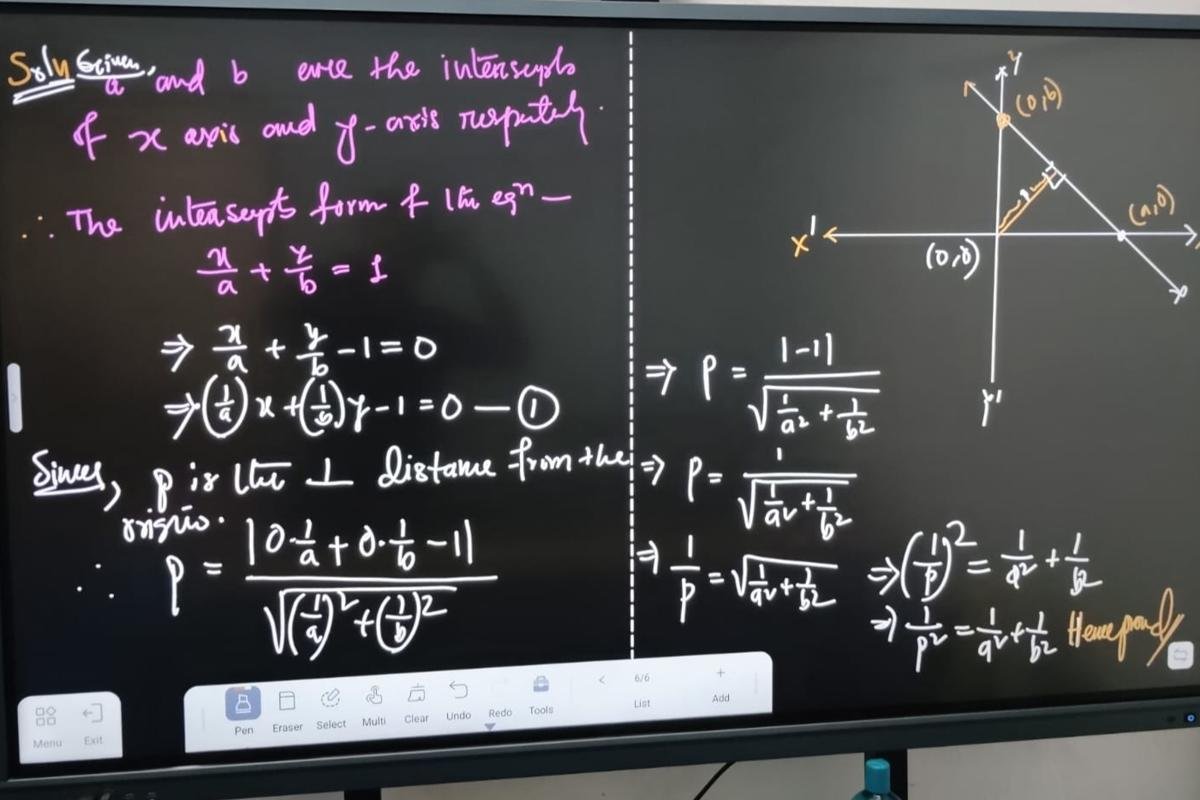 Soln Given,
a and b are the intersepts
of x axis and y-axis respitely.
∴ The intersepts form of the eqn –
x/a + y/b = 1
⇒ x/a + y/b - 1 = 0
⇒ (1/a)x + (1/b)y - 1 = 0 — ①
Sinces, p is the ⊥ distame from the
origin.
∴ p = |0·1/a + 0·1/b - 1| / √((1/a)² + (1/b)²)
Y
(0,b)
(a,0)
X'
(0,0)
Y'
⇒ p = |-1| / √(1/a² + 1/b²)
⇒ p = 1 / √(1/a² + 1/b²)
⇒ 1/p = √(1/a² + 1/b²) ⇒ (1/p)² = 1/a² + 1/b²
⇒ 1/p² = 1/a² + 1/b² Hence proved
Menu Exit
Pen Eraser Select Multi Clear Undo Redo Tools
< 6/6 +
List Add